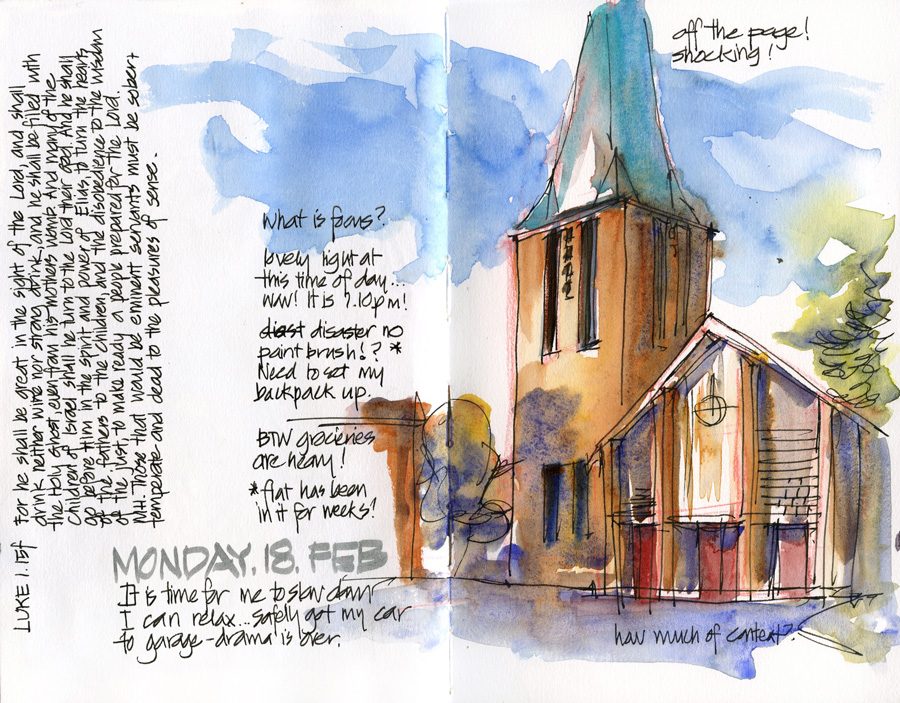 LUKE 1.15f For he shall be great in the sight of the Lord, and shall
drink neither wine nor strong drink, and he shall be filled with
the Holy Ghost, even from his mothers womb. And many of the
Children of Israel shall he turn to the Lord their God. And he shall
go before Him in the spirit and power of Elias, to turn the hearts
of the fathers to the children, and the disobedience to the wisdom
of the just, to make ready a people prepared for the Lord.
MH. Those that would be eminent servants must be sober +
temperate and dead to the pleasures of sense.
what is focus?
lovely light at
this time of day...
wow! It is 7.10pm!
disast disaster no
paint brush!? *
Need to set my
backpack up.
BTW groceries
are heavy!
* flat has been
in it for weeks!
MONDAY. 18. FEB
It is time for me to slow down
I can relax... safely got my car
to garage - drama is over.
off the page!
shocking!
how much of context?